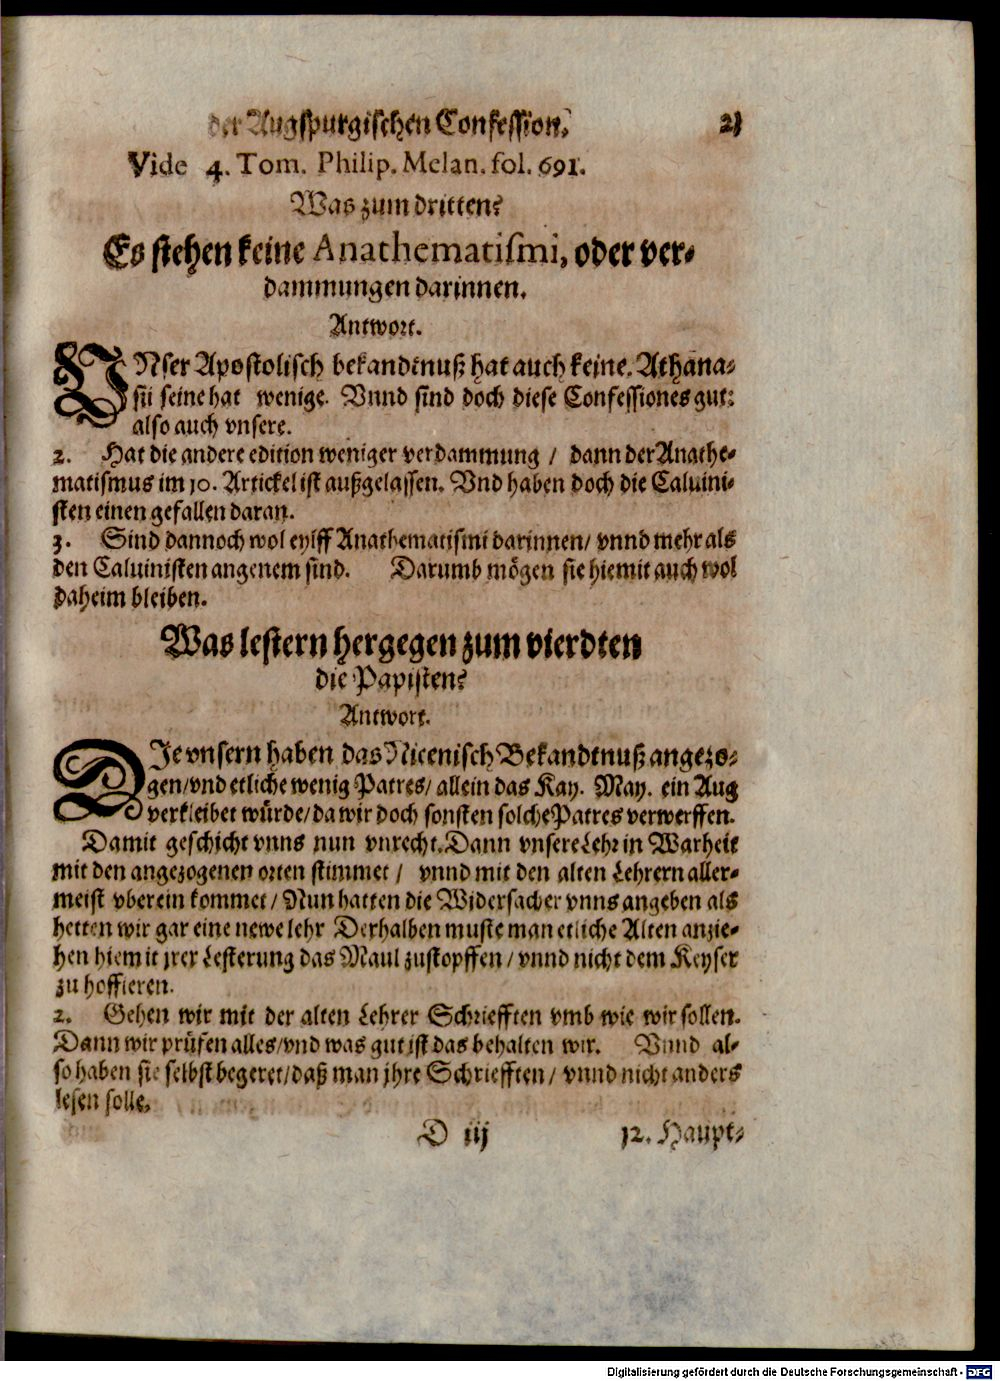 der Augspurgischen Confession. 21
Vide 4. Tom. Philip. Melan. fol. 691.
Was zum dritten?
Es stehen keine Anathematismi, oder ver-
dammungen darinnen.
Antwort.
VNser Apostolisch bekandtnuß hat auch keine. Athana-
sii seine hat wenige. Vnnd sind doch diese Confessiones gut:
also auch vnsere.
2. Hat die andere edition weniger verdammung / dann der Anathe-
matismus im 10. Artickel ist außgelassen. Vnd haben doch die Caluini-
sten einen gefallen daran.
3. Sind dannoch wol eylff Anathematismi darinnen/ vnnd mehr als
den Caluinisten angenem sind. Darumb mögen sie hiemit auch wol
daheim bleiben.
Was lestern hergegen zum vierdten
die Papisten?
Antwort.
DIe vnsern haben das Nicenisch Bekandtnuß angezo-
gen/vnd etliche wenig Patres/ allein das Kay. May. ein Aug
verkleibet würde/da wir doch sonsten solche Patres verwerffen.
Damit geschicht vnns nun vnrecht. Dann vnsere Lehr in Warheit
mit den angezogenen orten stimmet / vnnd mit den alten Lehrern aller-
meist vberein kommet / Nun hatten die Widersacher vnns angeben als
hetten wir gar eine newe lehr Derhalben muste man etliche Alten anzie-
hen hiemit jrer Lesterung das Maul zustopffen / vnnd nicht dem Keyser
zu hoffieren.
2. Gehen wir mit der alten Lehrer Schriefften vmb wie wir sollen.
Dann wir prüfen alles/vnd was gut ist das behalten wir. Vnnd al-
so haben sie selbst begeret/daß man jhre Schriefften / vnnd nicht anders
lesen solle.
D iij 12. Haupt-
Digitalisierung gefördert durch die Deutsche Forschungsgemeinschaft - DFG